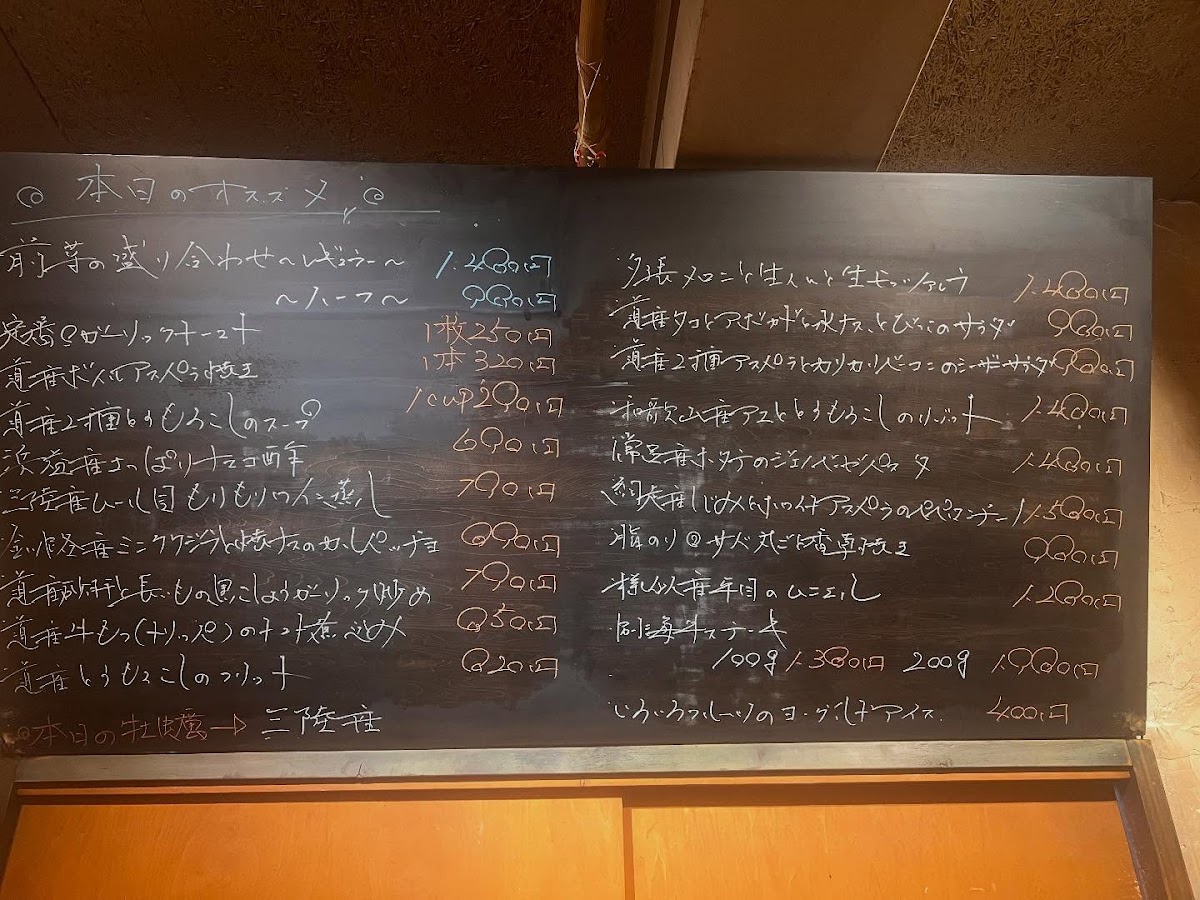 本日のオススメ
前菜の盛り合わせ〜レギュラー〜 1.480円
〜ハーフ〜 980円
ガーリックトースト 1枚250円
道産ボイルアスパラ焼 1本320円
道産2種とうもろこしのスープ 1cup290円
浜益産さっぱりナマコ酢 690円
三陸産ムール貝もりもりワイン蒸し 790円
産ミンククジラと焼ナスのカルパッチョ 890円
道産 と長いもの黒こしょうガーリック炒め 790円
道産牛もつ(トリッパ)のトマト煮込み 850円
道産とうもろこしのフリット 820円
本日の牡蠣→三陸産
夕張メロンと生ハムと生モッツァレラ 1.480円
道産タコとアボカドと水ナスとびっこのサラダ 980円
道産2種アスパラとカリカリベーコンのシーザーサラダ 980円
和歌山産 とうもろこしのリゾット 1.480円
常呂産ホタテのジェノベーゼパスタ 1.480円
網走産しじみとホワイトアスパラのペペロンチーノ 1.580円
脂のり サバ丸ごと 焼 980円
様似産 のムニエル 1.280円
別海牛ステーキ
100g 1.380円 200g 1.980円
いろいろフルーツのヨーグルトアイス 400円